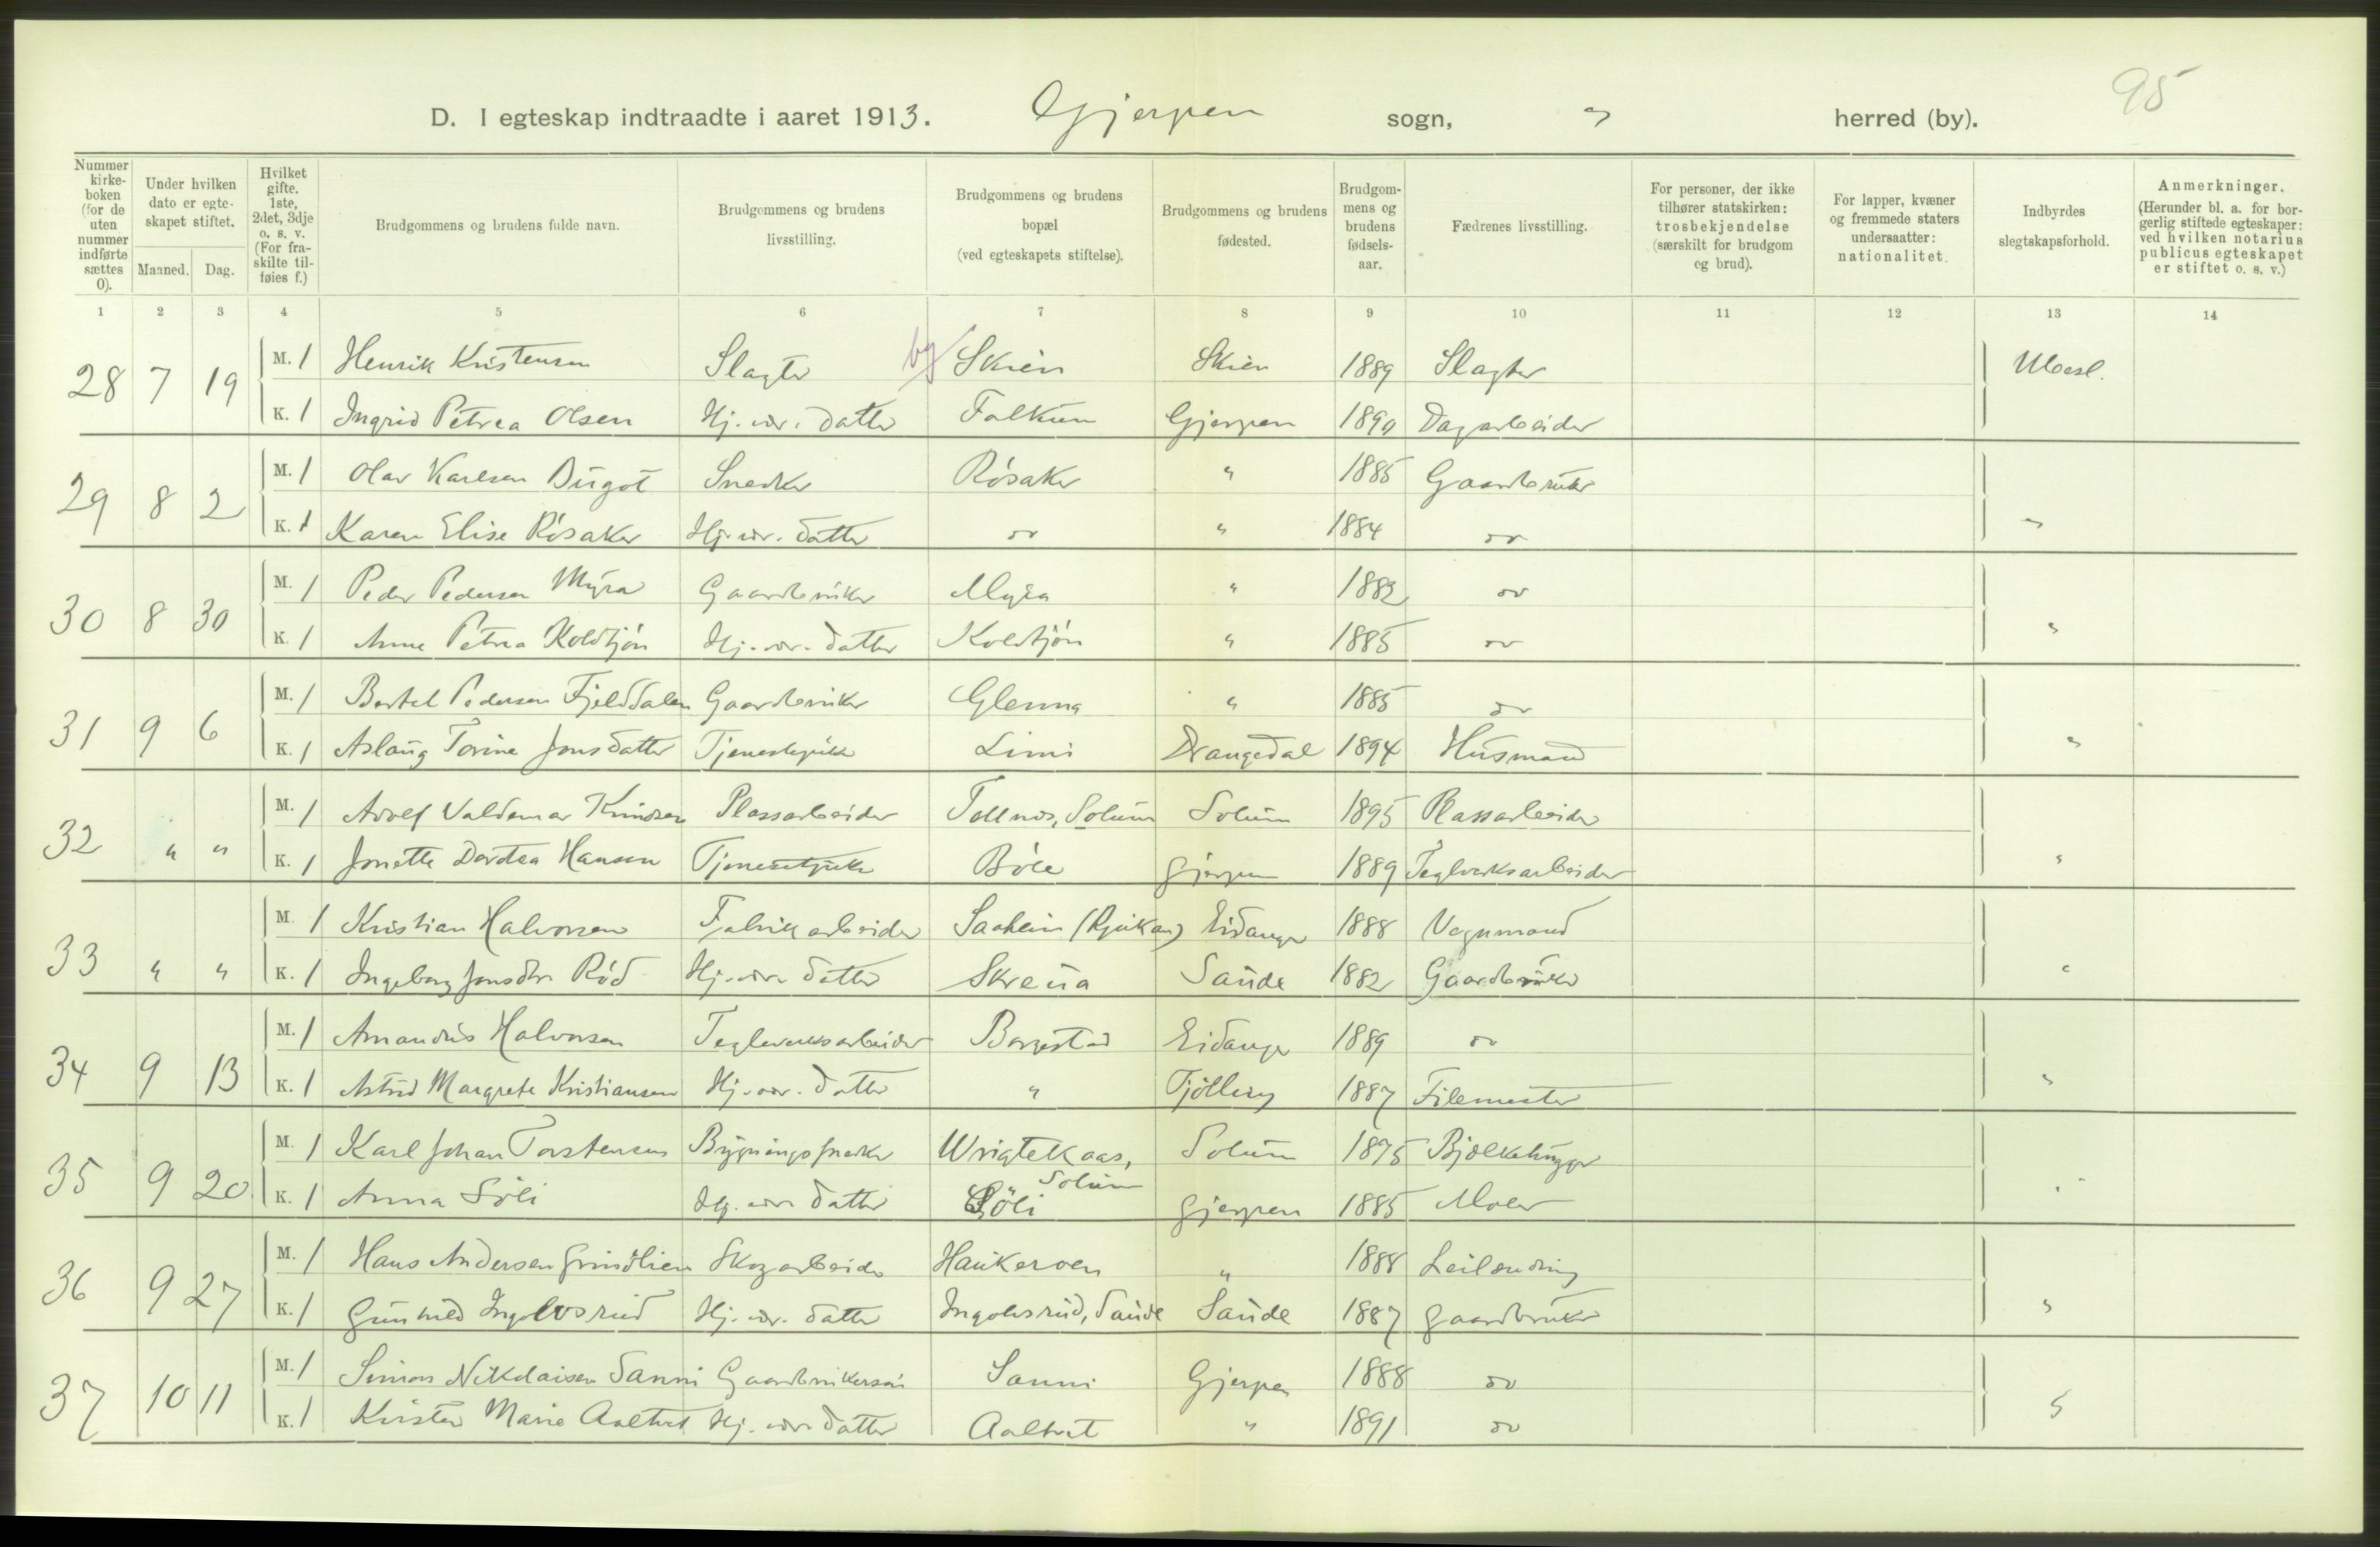 95
D. I egteskap indtraadte i aaret 1913. Gjerpen sogn, " herred (by).
Nummer kirkeboken (for de uten nummer indførte sættes 0).
Under hvilken dato er egteskapet stiftet.
Maaned. Dag.
Hvilket gifte. 1ste, 2det, 3dje o. s. v. (For fraskilte tilføies f.)
Brudgommens og brudens fulde navn.
Brudgommens og brudens livsstilling.
Brudgommens og brudens bopæl (ved egteskapets stiftelse).
Brudgommens og brudens fødested.
Brudgommens og brudens fødselsaar.
Fædrenes livsstilling.
For personer, der ikke tilhører statskirken: trosbekjendelse (særskilt for brudgom og brud).
For lapper, kvæner og fremmede staters undersaatter: nationalitet.
Indbyrdes slegtskapsforhold.
Anmerkninger. (Herunder bl. a. for borgerlig stiftede egteskaper: ved hvilken notarius publicus egteskapet er stiftet o. s. v.)
1 2 3 4 5 6 7 8 9 10 11 12 13 14
28 7 19 M. 1 Henrik Kristensen Slagter by Skien Skien 1889 Slagter Ubesl.
K. 1 Ingrid Petrea Olsen Hj. vær. datter Falkum Gjerpen 1890 Dagarbeider
29 8 2 M. 1 Olav Karlsen Bugot Snedker Rösaker " 1885 Gaardbruker "
K. 1 Karen Elise Rösaker Hj. vær. datter do " 1884 do
30 8 30 M. 1 Peder Pedersen Myra Gaardbruker Myra " 1882 do "
K. 1 Anne Petrea Koldtjön Hj. vær. datter Koldtjön " 1885 do
31 9 6 M. 1 Bertel Pedersen Fjelddalen Gaardbruker Glenna " 1885 do "
K. 1 Aslaug Torine Jonsdatter Tjenestepike Limi Drangedal 1894 Husmand
32 " " M. 1 Adolf Valdemar Knudsen Plassarbeider Tollnes, Solum Solum 1895 Plassarbeider "
K. 1 Jonette Dortea Hansen Tjenestepike Böle Gjerpen 1889 Teglverksarbeider
33 " " M. 1 Kristian Halvorsen Fabrikarbeider Saaheim (Rjukan) Eidanger 1888 Vognmand "
K. 1 Ingeborg Jonsdtr Röd Hj. vær. datter Skreua Saude 1882 Gaardbruker
34 9 13 M. 1 Amandus Halvorsen Teglverksarbeider Borgestad Eidanger 1889 do "
K. 1 Astrid Margrete Kristiansen Hj. vær. datter " Tjölling 1887 Filemester
35 9 20 M. 1 Karl Johan Torstensen Bygningssnedker Wrigtekaas, Solum Solum 1875 Bjelkehugger "
K. 1 Anna Söli Hj. vær. datter Söli Gjerpen 1885 Maler
36 9 27 M. 1 Hans Andersen Grindlien Skogarbeider Haukeroen " 1888 Leilænding "
K. 1 Gunhild Ingolvsrud Hj. vær. datter Ingolvsrud, Saude Saude 1887 Gaardbruker
37 10 11 M. 1 Simon Nikolaisen Sanni Gaardbrukersøn Sanni Gjerpen 1888 do "
K. 1 Kirsten Marie Aaltvet Hj. vær. datter Aaltvet " 1891 do